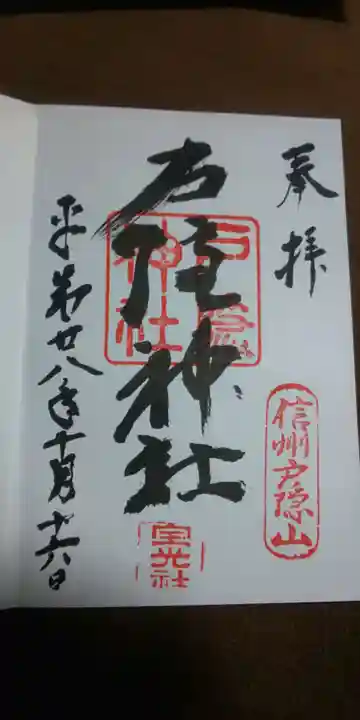 奉拝
信州戸隠山
戸隠神社
戸隠
神社
宝光社
平成廿八年十月十六日